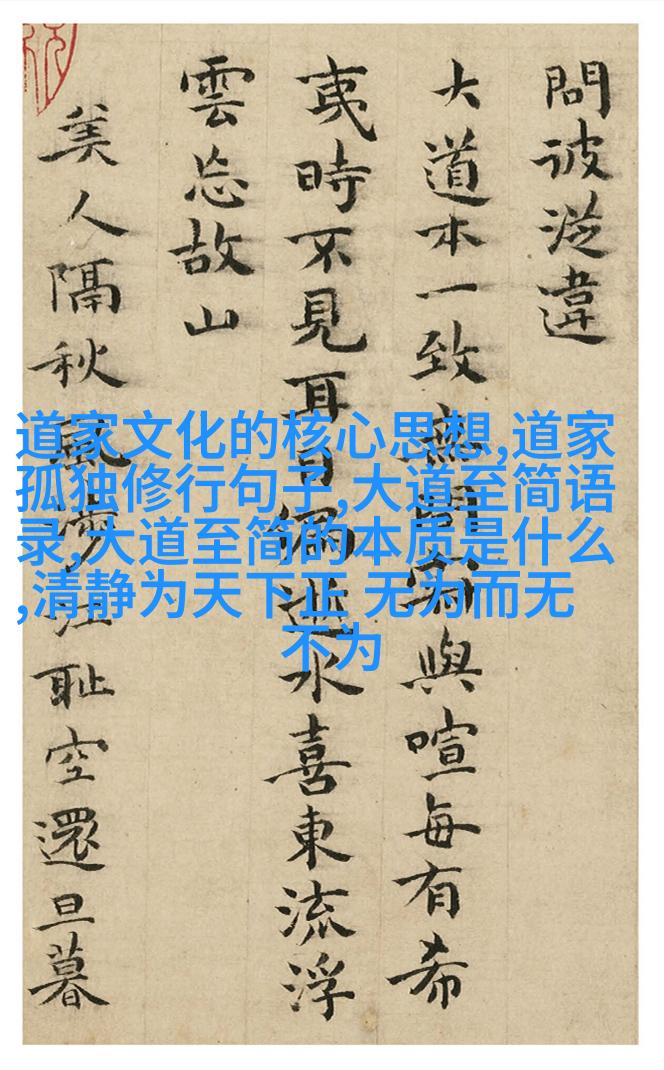 問違
大道本一致無與喧每有希
夷時不見耳目水喜東流浮
雲忘故山
美人隔秋風江耻空還旦暮
道家文化的核心思想,道家
孤独修行句子,大道至简语
录,大道至简的本质是什么
,清静为天下正 无为而无
不为